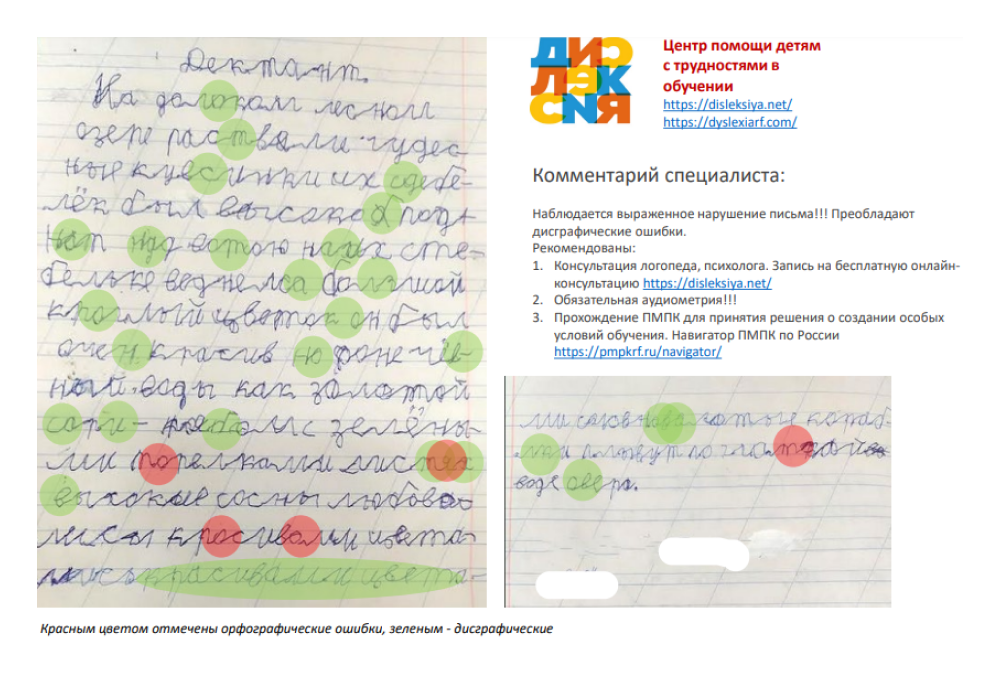 Дектант.
На далоком лесном
озере раствали чудес
ные кувсинки их сдебе-
лёк был высако
нат над вотою на их сте-
бельке большой
круглый цветок он был
очен красив но фоне
ной воды как золотой
сари - с зелёны-
ми торелками листях
выхокие сосны любова
лись красивами цвета
красивами цвета-
ДИС
ЛЕК
СИЯ
Центр помощи детям
с трудностями в
обучении
https://disleksiya.net/
https://dyslexiarf.com/
Комментарий специалиста:
Наблюдается выраженное нарушение письма!!! Преобладают
дисграфические ошибки.
Рекомендованы:
1. Консультация логопеда, психолога. Запись на бесплатную онлайн-
консультацию https://disleksiya.net/
2. Обязательная аудиометрия!!!
3. Прохождение ПМПК для принятия решения о создании особых
условий обучения. Навигатор ПМПК по России
https://pmpkrf.ru/navigator/
ми котаб-
лки плывут по
воде свера.
Красным цветом отмечены орфографические ошибки, зеленым - дисграфические